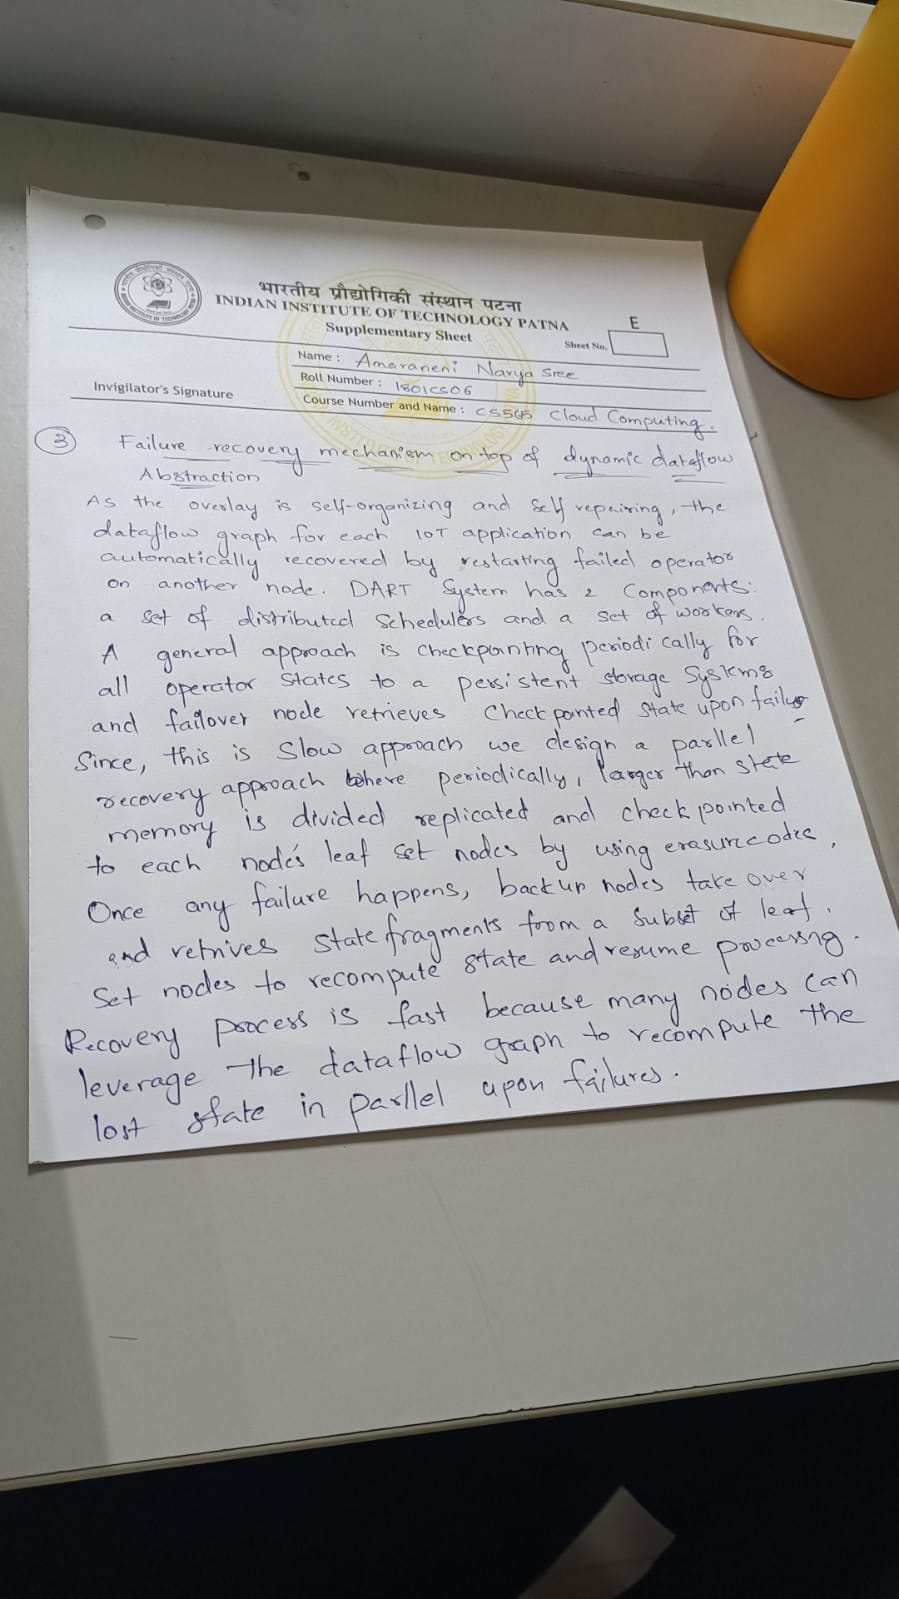 भारतीय प्रौद्योगिकी संस्थान पटना
INDIAN INSTITUTE OF TECHNOLOGY PATNA
Supplementary Sheet
Sheet No. E
Name : Amaraneni Navya Sree
Roll Number : 1801CS06
Invigilator's Signature
Course Number and Name : CS565 Cloud Computing.
3 Failure recovery mechanism on top of dynamic dataflow
Abstraction
As the overlay is self-organizing and self repairing, the
dataflow graph for each IOT application can be
automatically recovered by restarting failed operator
on another node. DART System has 2 Components:
a set of distributed Schedulers and a set of workers.
A general approach is checkpointing periodically for
all operator States to a persistent storage Systems
and failover node retrieves Checkpointed State upon failure
Since, this is Slow approach we design a parllel
recovery approach where periodically, larger than state
memory is divided replicated and checkpointed
to each node's leaf set nodes by using erasure codes.
Once any failure happens, backup nodes take over
and retrives State fragments from a subset of leaf
Set nodes to recompute state and resume processng.
Recovery process is fast because many nodes can
leverage the dataflow graph to recompute the
lost state in parllel upon failures.